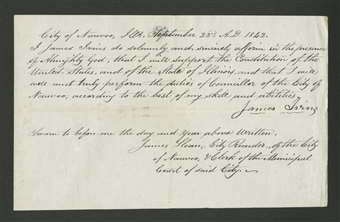 City of Nauvoo, Ills. September 23d A.D. 1843.
I James Ivins do solemnly and sincerely affirm in the presence
of Almighty God, that I will support the Constitution of the
United States, and of the State of Illinois, and that I will
well and truly perform the duties of Councillor of the City of
Nauvoo, according to the best of my skill and abilities.
James Ivins
Sworn to before me the day and year above written.
James Sloan, City Recorder of the City
of Nauvoo, & Clerk of the Municipal
Court of said City